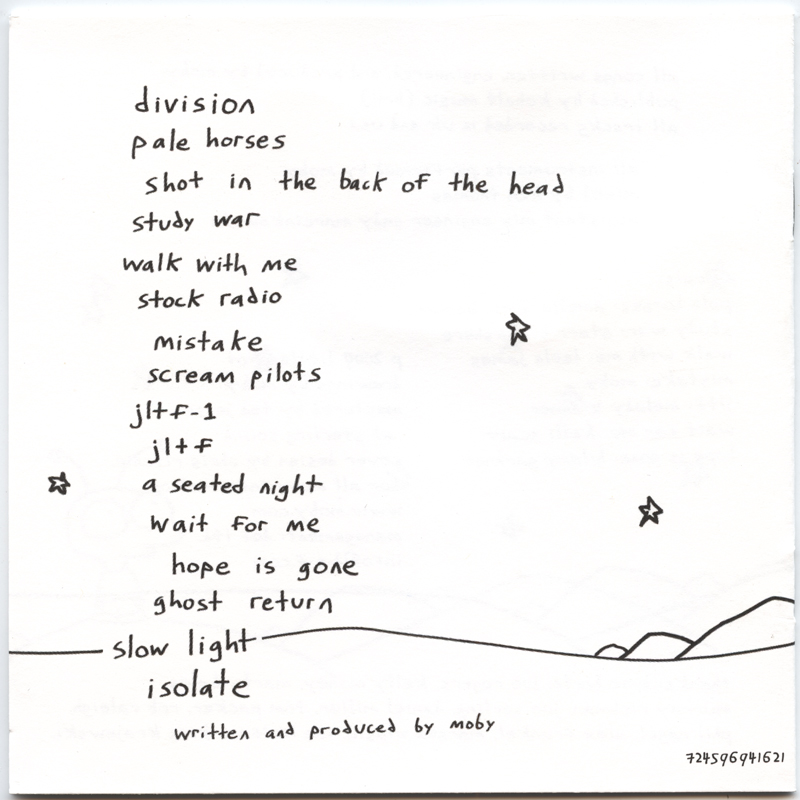 division
pale horses
shot in the back of the head
study war
walk with me
stock radio
mistake
scream pilots
jltf-1
jltf
a seated night
wait for me
hope is gone
ghost return
slow light
isolate
written and produced by moby
724596941621